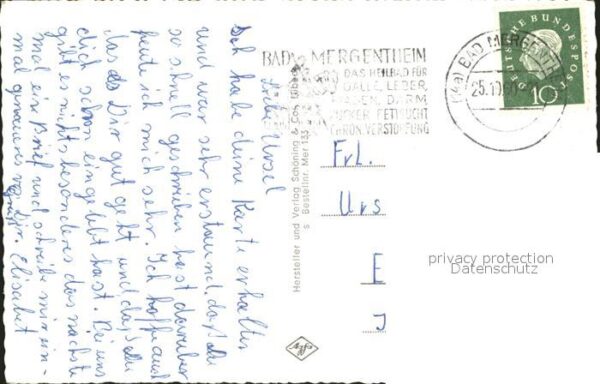 BAD MERGENTHEIM
DAS HEILBAD FÜR
GALLE, LEBER,
MAGEN, DARM,
ZUCKER, FETTSUCHT
CHRON. VERSTOPFUNG
(14a) BAD MERGENTHEIM
25.10.60
DEUTSCHE BUNDESPOST
10
Liebe Ursel
habe deine Karte erhalten
und war sehr erstaunt, daß du
so schnell geschrieben hast darüber
freute ich mich sehr. Ich hoffe auch
das es Dir gut geht und daß du
dich schon eingelebt hast. Bei uns
gibt es nichts besonderes das nächste
mal ein Brief und schreibe mir ein-
mal genaueres von Dir. Elisabet
Gruß
Hersteller und Verlag Schöning & Co., Lübeck
S Bestellnr. Mer 135
Agfa
Frl.
Urs
E
J
privacy protection
Datenschutz